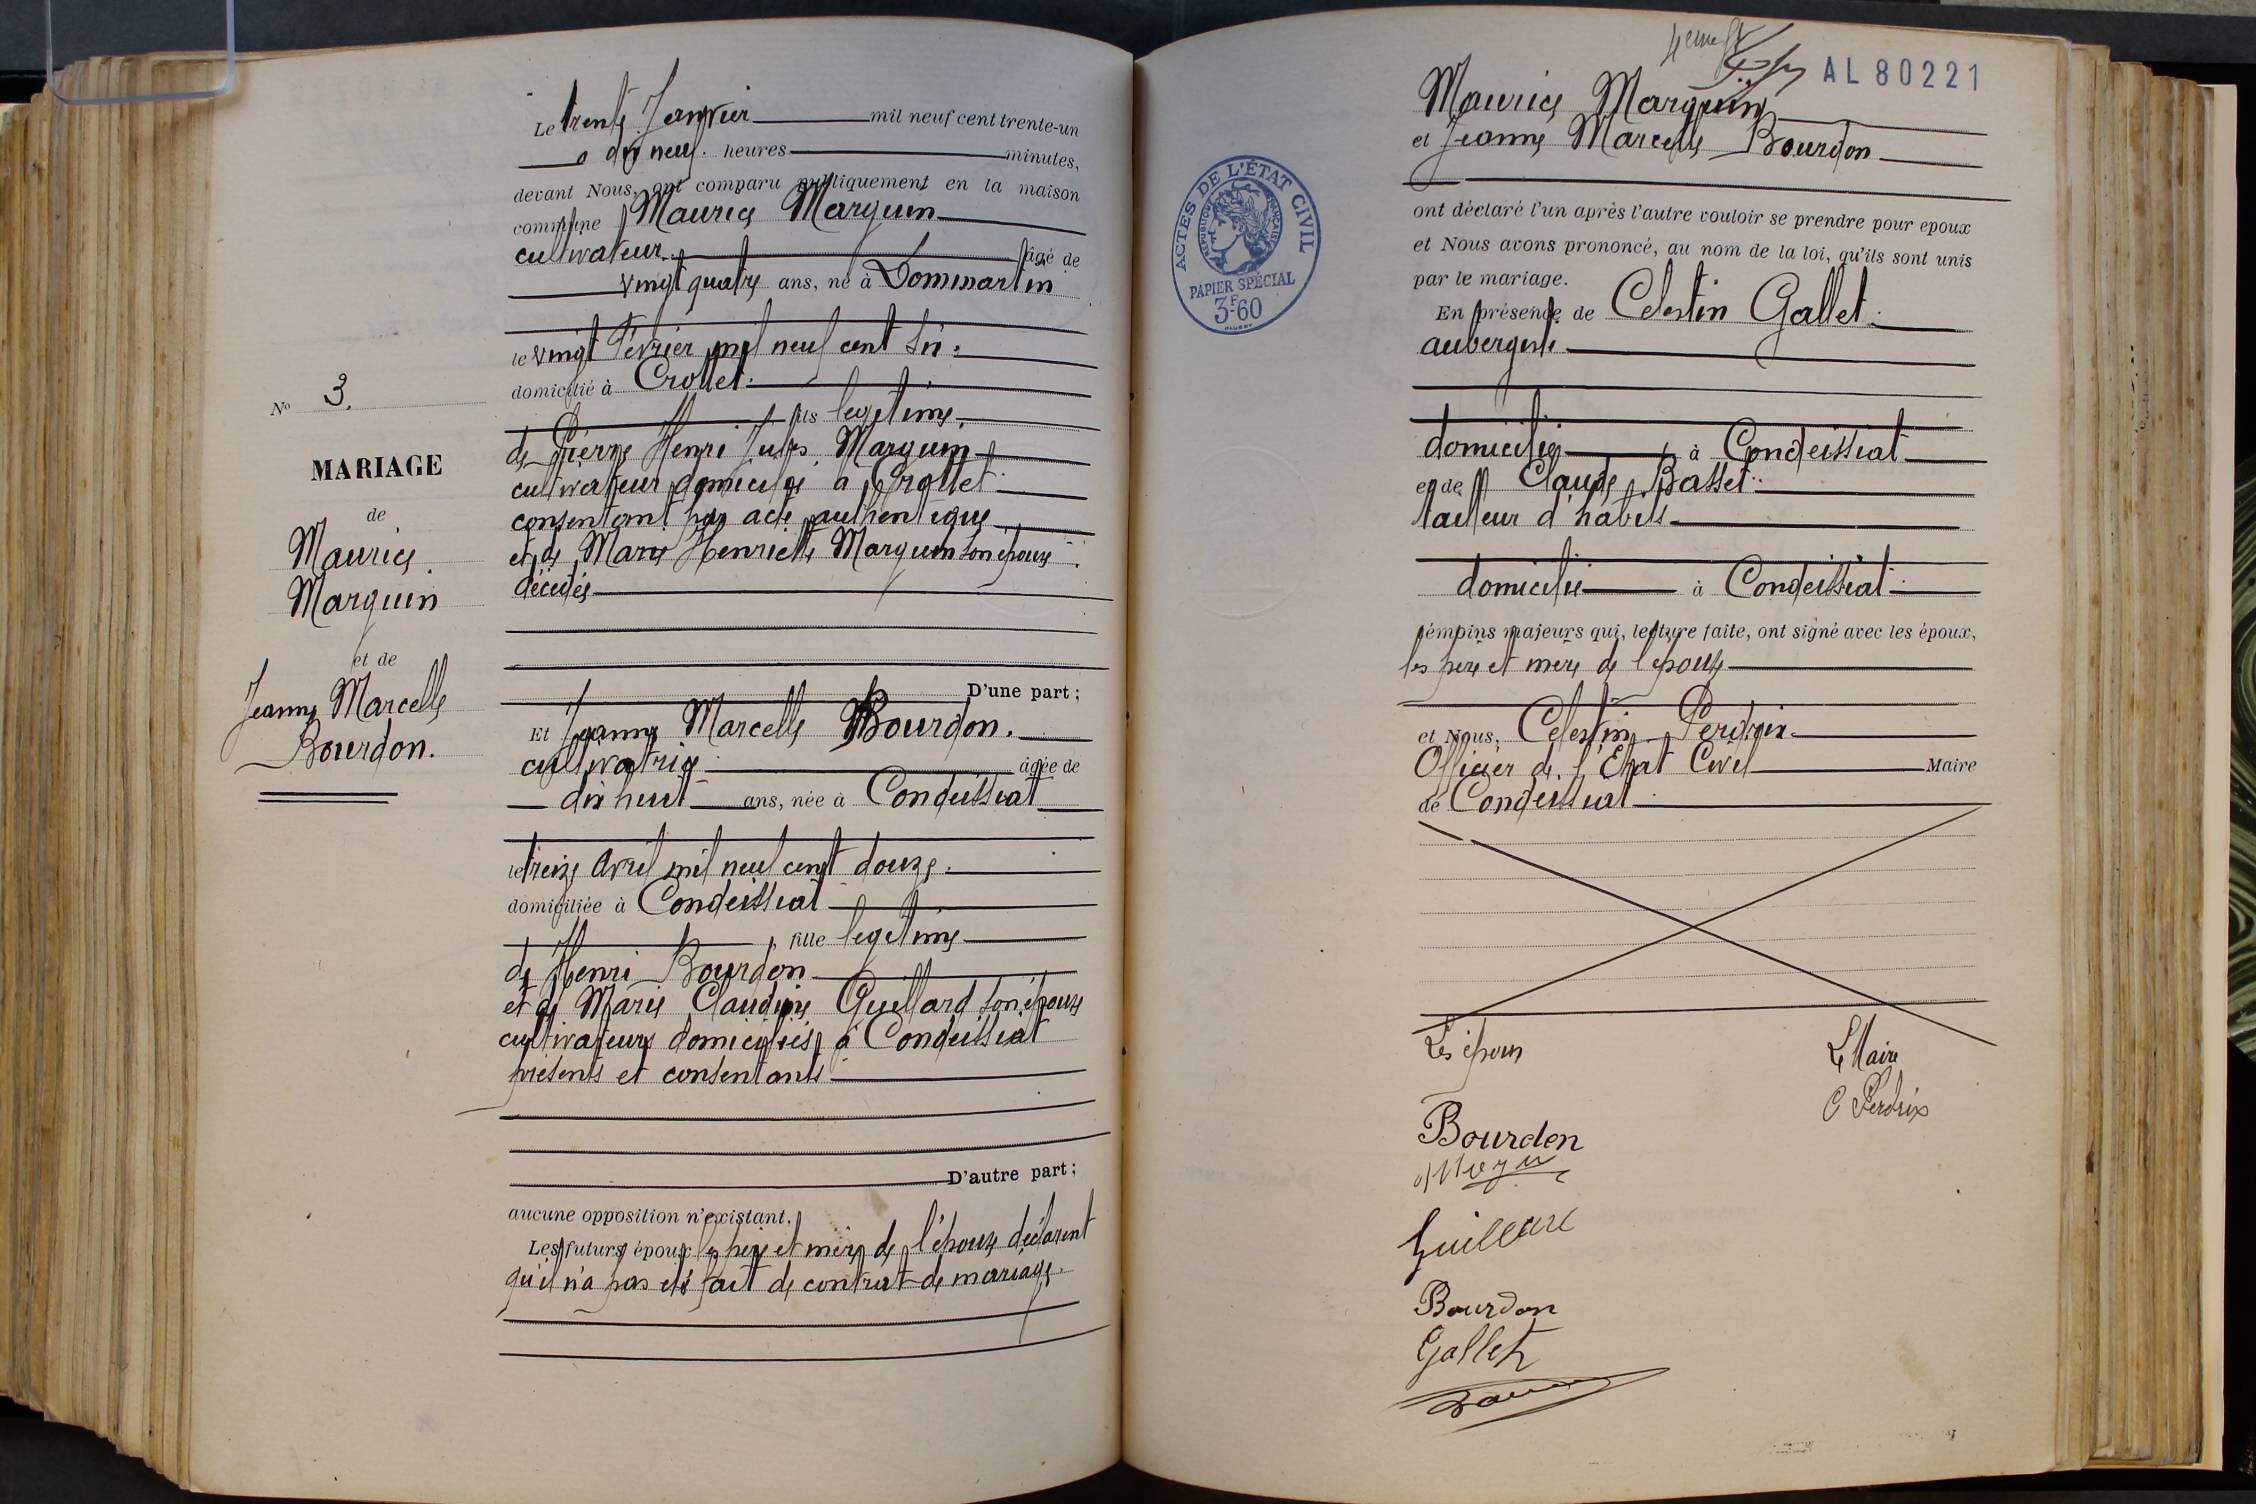 Le trente Janvier mil neuf cent trente-un
a dix neuf heures minutes,
devant Nous, ont comparu publiquement en la maison
commune Maurice Marguin
cultivateur âgé de
vingt quatre ans, né à Dommartin
le vingt Février mil neuf cent six.
domicilié à Crottet.
fils legitime
de Pierre Henri Jules Marguin
cultivateur domicilié à Crottet
consentant par acte authentique
et de Marie Henriette Marguin son épouse
décédée
D'une part ;
Et Jeanne Marcelle Bourdon.
cultivatrice âgée de
dix huit ans, née à Condeissiat
le treize Avril mil neuf cent douze.
domiciliée à Condeissiat
fille legitime
de Henri Bourdon
et de Marie Claudine Guillard son épouse
cultivateurs domiciliés à Condeissiat
présents et consentants
D'autre part ;
aucune opposition n'existant.
Les futurs époux les père et mère de l'épouse déclarent
qu'il n'a pas été fait de contrat de mariage.
No 3.
MARIAGE
de
Maurice
Marguin
et de
Jeanne Marcelle
Bourdon.
AL 80221
Maurice Marguin
et Jeanne Marcelle Bourdon
ont déclaré l'un après l'autre vouloir se prendre pour epoux
et Nous avons prononcé, au nom de la loi, qu'ils sont unis
par le mariage.
En présence de Celestin Gallet
aubergiste.
domicilié à Condeissiat
et de Claude Basset
tailleur d'habits
domicilié à Condeissiat
témoins majeurs qui, lecture faite, ont signé avec les époux,
les père et mère de l'épouse
et Nous, Celestin Perdrix
Officier de l'Etat Civil Maire
de Condeissiat
Les époux
Le Maire
C Perdrix
Bourdon
Guillard
Bourdon
Gallet
ACTES DE L'ÉTAT CIVIL
RÉPUBLIQUE FRANÇAISE
PAPIER SPÉCIAL
3F60